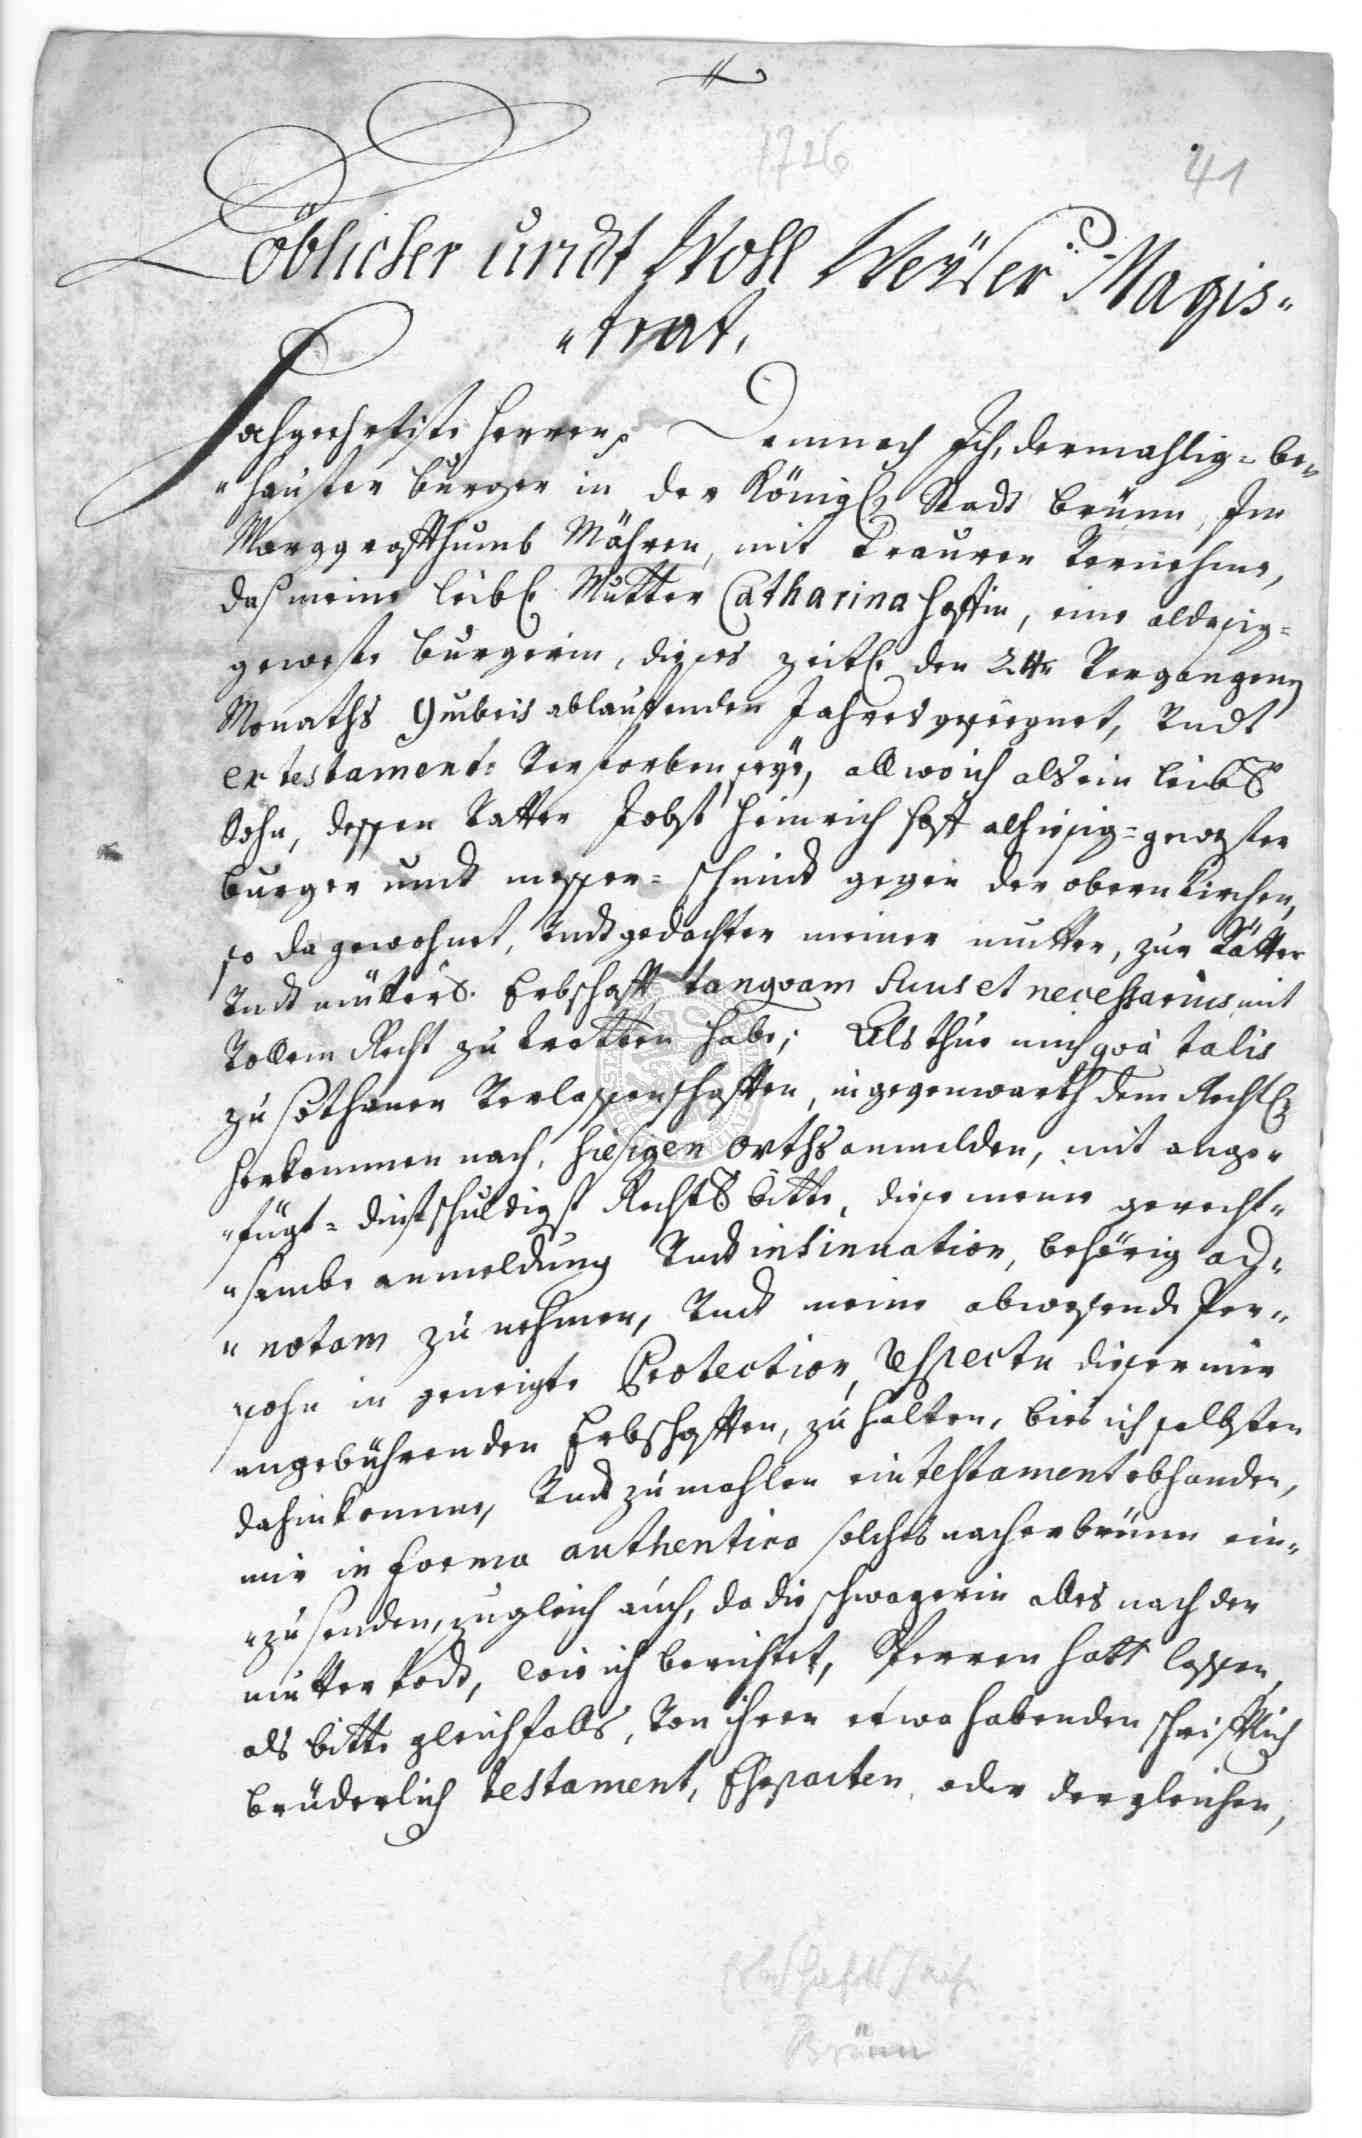 1726
41
Löblicher undt Wohl Weyser Magis-
-trat,
Hochgeehrtiste Herren, Demnach Ich, dermahlig- be-
-hauster burger in der Königl. Stadt brünn, Im
Marggraffthumb Mähren, mit trauren vernehme,
daß meine leibl. Mutter Catharina Hoffin, eine aldasig-
geweste burgerin, dieses zeitl. den 24te vergangenen
Monaths 9mbris ablaufenden Jahres gesegnet, vndt
ex testamento verstorben seye, allwo ich als ein leibl.
Sohn, dessen vatter Jobst Heinrich Hoff alhiesig-gewester
burger undt messer-schmidt gegen der obern kirchen,
so da gewohnet, vndt gedachter meiner mutter, zur vätter
vndt mütterl. Erbschafft tanquam suus et necessarius mit
vollem Recht zu tretten habe; Als thue mich qva talis
zu sothaner verlassenschafften, in gegenwarth dem Rechtl.
herkommen nach, hiesigen orths anmelden, mit ange-
-fügt- dinstschuldigst Rechts bitte, diese meine gerecht-
-sambe anmeldung vndt insinuation, behörig ad-
-notam zu nehmen, vndt meine abwesende Per-
sohn in geneigte Protection, respectu dieser mir
angebührenden Erbschafften, zu halten, bies ich selbsten
dahin komme, vndt zumahlen ein testament obhanden,
mir in forma authentica solches nacher brünn ein-
-zusenden, zugleich auch, da die schwagerin alles nach der
mutter todt, wie ich berichtet, sperren hatt lassen,
als bitte gleichfalls, von ihrer etwa habenden schrifftlich
brüderlich testament, Ehepacten, oder dergleichen,
Brünn